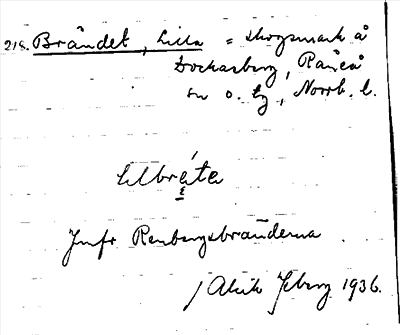 218. Brändet, Lilla = skogsmark å
Dockasberg, Råneå
sn o. tg, Norrb. l.
lilbrǻte
Jmfr Renbergsbränderna
/ Alvik Isberg 1936.